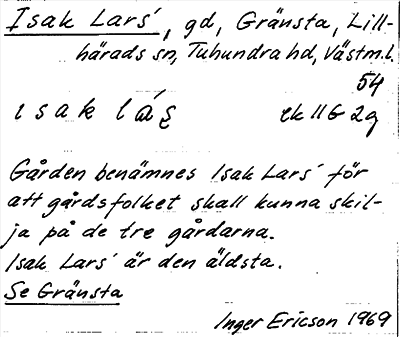 Isak Lars´, gd, Gränsta, Lill-
härads sn, Tuhundra hd, Västm.l.
54
ısak lás̨ ek 11G 2g
Gården benämnes Isak Lars´ för
att gårdsfolket skall kunna skil-
ja på de tre gårdarna.
Isak Lars´ är den äldsta.
Se Gränsta
Inger Ericson 1969